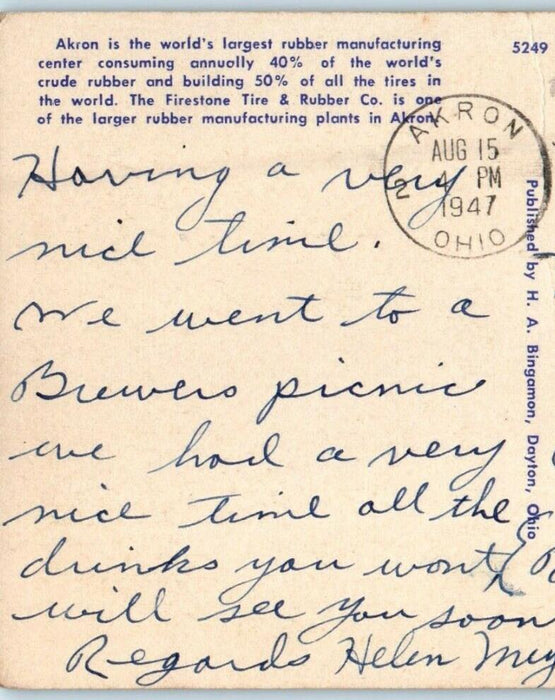 Akron is the world's largest rubber manufacturing
center consuming annually 40% of the world's
crude rubber and building 50% of all the tires in
the world. The Firestone Tire & Rubber Co. is one
of the larger rubber manufacturing plants in Akron.
5249
AKRON
AUG 15
4 PM
1947
OHIO
2
Published by H. A. Bingamon, Dayton, Ohio
Having a very
nice time.
We went to a
Brewers picnic
we had a very
nice time all the
drinks you wont
will see you soon
Regards Helen